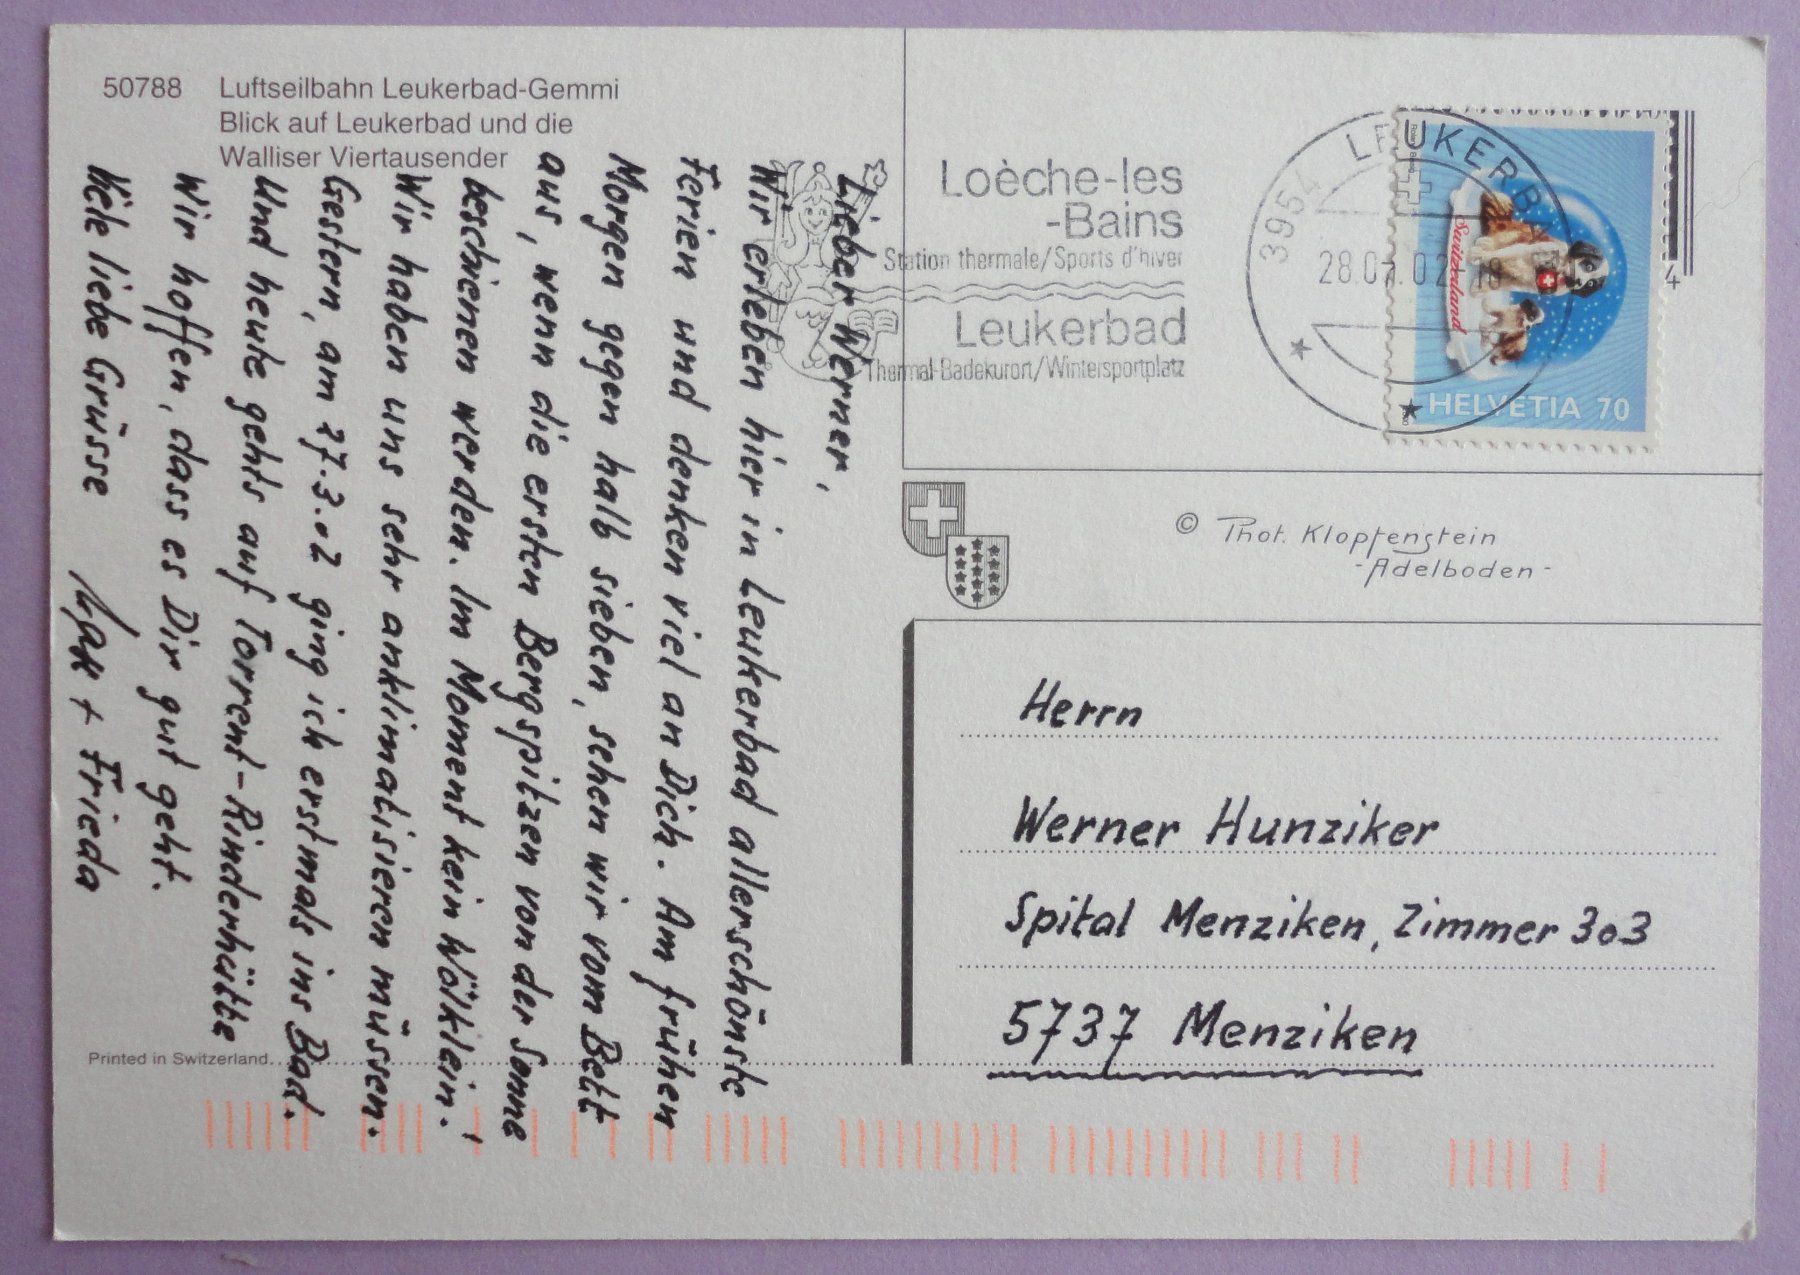 50788 Luftseilbahn Leukerbad-Gemmi
Blick auf Leukerbad und die
Walliser Viertausender
Lieber Werner,
Wir erleben hier in Leukerbad allerschönste
Ferien und denken viel an Dich. Am frühen
Morgen gegen halb sieben, sehen wir vom Bett
aus, wenn die ersten Bergspitzen von der Sonne
beschienen werden. Im Moment kein Wölklein!
Wir haben uns sehr anklimatisieren müssen.
Gestern, am 27.3.02 ging ich erstmals ins Bad.
Und heute gehts auf Torrent-Rinderhütte
Wir hoffen, dass es Dir gut geht.
Viele liebe Grüsse Max + Frieda
Printed in Switzerland
Loèche-les
-Bains
Station thermale/Sports d'hiver
Leukerbad
Thermal-Badekurort/Wintersportplatz
3954 LEUKERBAD
28.03.02-18
Switzerland
HELVETIA 70
© Phot. Klopfenstein
-Adelboden-
Herrn
Werner Hunziker
Spital Menziken, Zimmer 303
5737 Menziken